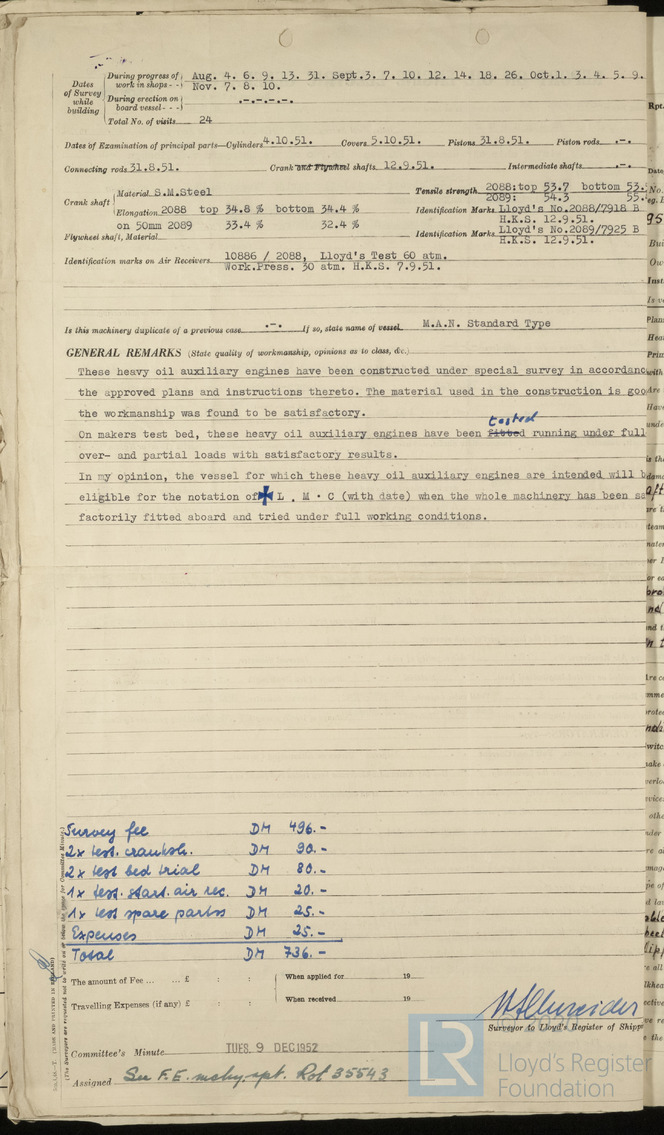 Dates of Survey while building
During progress of work in shops - - Aug. 4. 6. 9. 13. 31. Sept.3. 7. 10. 12. 14. 18. 26. Oct.1. 3. 4. 5. 9.
Nov. 7. 8. 10.
During erection on board vessel - - - .-.-.-.-.
Total No. of visits 24
Dates of Examination of principal parts—Cylinders 4.10.51. Covers 5.10.51. Pistons 31.8.51. Piston rods .-.
Connecting rods 31.8.51. Crank and Flywheel shafts 12.9.51. Intermediate shafts .-.
Crank shaft Material S.M.Steel Tensile strength 2088: top 53.7 bottom 53.
2089: 54.3 55.
Elongation 2088 top 34.8 % bottom 34.4 % Identification Marks Lloyd's No.2088/7918 B
H.K.S. 12.9.51.
on 50mm 2089 33.4 % 32.4 %
Flywheel shaft, Material Identification Marks Lloyd's No.2089/7925 B
H.K.S. 12.9.51.
Identification marks on Air Receivers 10886 / 2088, Lloyd's Test 60 atm.
Work.Press. 30 atm. H.K.S. 7.9.51.
Is this machinery duplicate of a previous case .-. If so, state name of vessel M.A.N. Standard Type
GENERAL REMARKS (State quality of workmanship, opinions as to class, &c.)
These heavy oil auxiliary engines have been constructed under special survey in accordanc
the approved plans and instructions thereto. The material used in the construction is goo
the workmanship was found to be satisfactory.
tested
On makers test bed, these heavy oil auxiliary engines have been fitted running under full
over- and partial loads with satisfactory results.
In my opinion, the vessel for which these heavy oil auxiliary engines are intended will b
eligible for the notation of ✠ L . M · C (with date) when the whole machinery has been sa
factorily fitted aboard and tried under full working conditions.
Survey fee DM 496.-
2x test. cranksh. DM 90.-
2x test bed trial DM 80.-
1x test. start. air rec. DM 20.-
1x test spare parts DM 25.-
Expenses DM 25.-
Total DM 736.-
The amount of Fee ... ... £ : : When applied for 19
Travelling Expenses (if any) £ : : When received 19
Surveyor to Lloyd's Register of Shipp
Committee's Minute TUES. 9 DEC 1952
Assigned See F.E. mchy. rpt. Rot 35543
LR Lloyd's Register Foundation